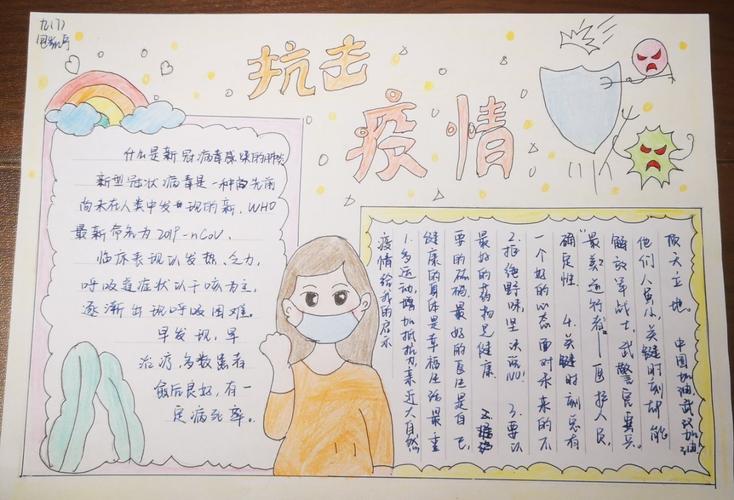 九(7)
抗击
疫情
什么是新冠病毒感染的肺炎
新型冠状病毒是一种先前
尚未在人类中发现的新,WHO
最新命名为2019-nCoV.
临床表现以发热、乏力,
呼吸道症状以干咳为主,
逐渐出现呼吸困难。
早发现,早
治疗,多数患者
愈后良好,有一
定病死率。
疫情给我的启示
1.多运动,增加抵抗力,亲近大自然
健康的身体是幸福生活最重
要的砝码.最好的医生是自己,
最好的药物是健康
2.拒绝野味,坚决说NO! 3.要以
一个好的心态面对未来的不
确定性. 4.关键时刻总有
"最美逆行者"——医护人员,
解放军战士,武警官兵,
他们人虽小,关键时刻却能
顶天立地. 中国加油,武汉加油